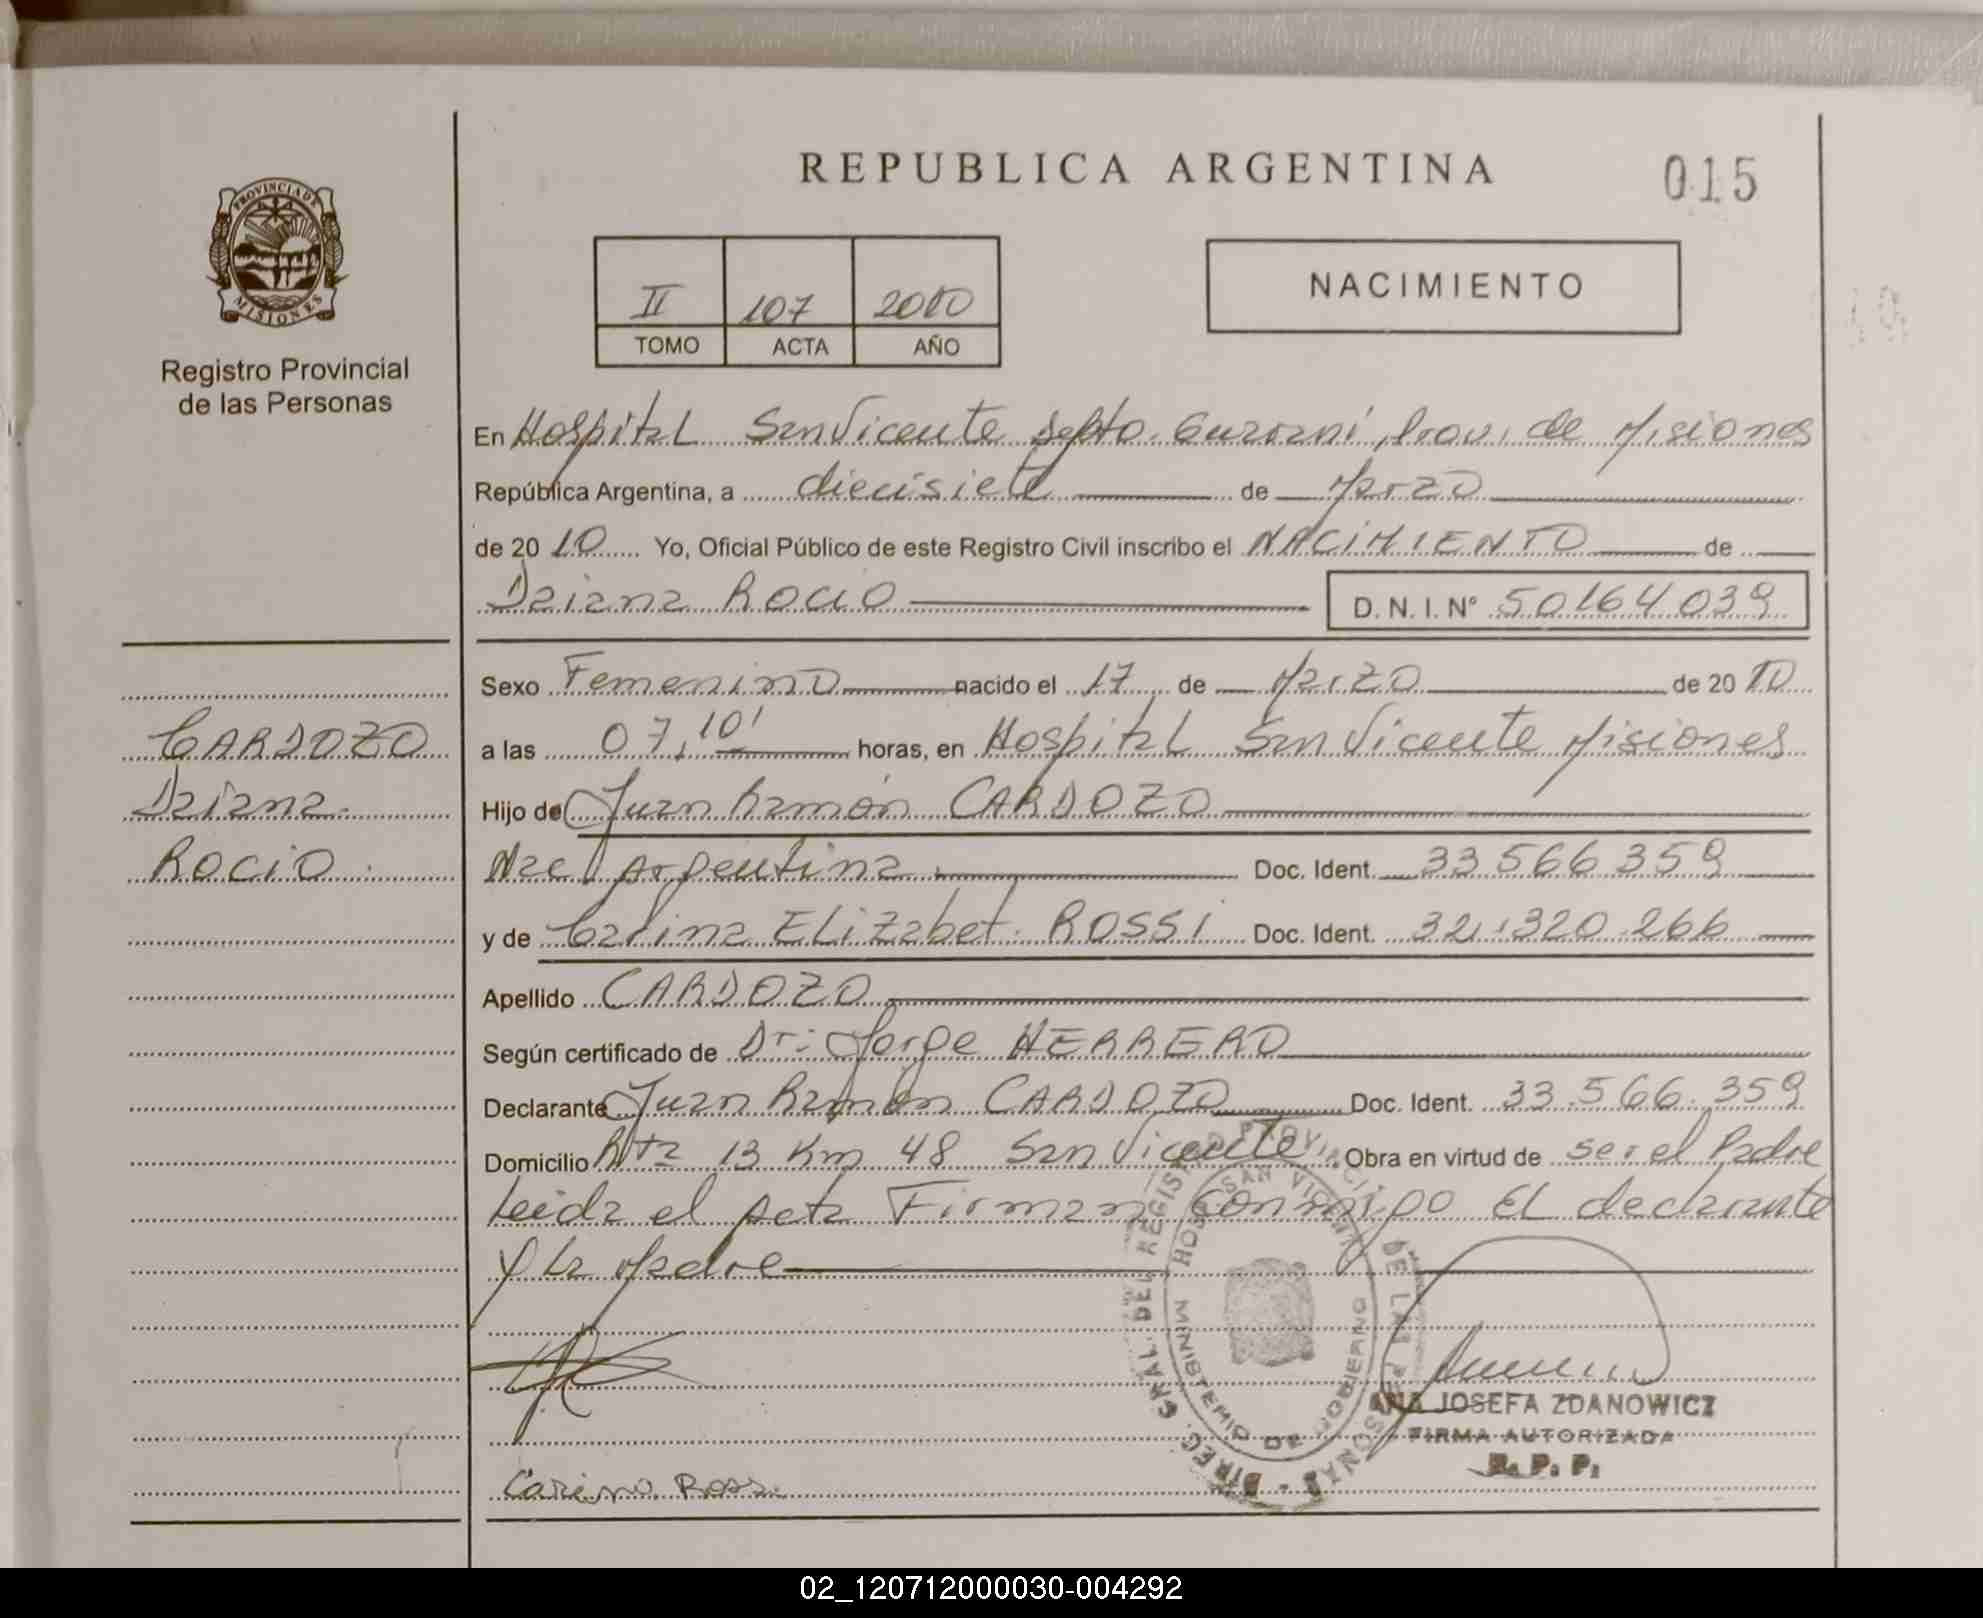 REPUBLICA ARGENTINA
015
NACIMIENTO
II 107 2010
TOMO ACTA AÑO
PROVINCIA DE
MISIONES
Registro Provincial
de las Personas
En Hospital San Vicente Depto. Guaraní, Prov. de Misiones
República Argentina, a diecisiete de Marzo
de 20 10 Yo, Oficial Público de este Registro Civil inscribo el NACIMIENTO de
Daiana Rocio D.N.I. N° 50164039
Sexo Femenino nacido el 17 de Marzo de 20 10
a las 07,10' horas, en Hospital San Vicente Misiones
Hijo de Juan Ramón CARDOZO
Nac. Argentina Doc. Ident. 33 566 359
y de Carina Elizabet ROSSI Doc. Ident. 32.320.266
Apellido CARDOZO
Según certificado de Dr. Jorge HERRERO
Declarante Juan Ramón CARDOZO Doc. Ident. 33.566.359
Domicilio Rta 13 Km 48 San Vicente Obra en virtud de ser el Padre
Leida el acta Firman conmigo El declarante
y la Madre
CARDOZO
Daiana
ROCIO
DIREC. GRAL. DEL REGISTRO PROVINCIAL DE LAS PERSONAS
HOSP. SAN VICENTE
MINISTERIO DE GOBIERNO
ANA JOSEFA ZDANOWICZ
FIRMA AUTORIZADA
R. P. P.
Carina Rossi
02_120712000030-004292